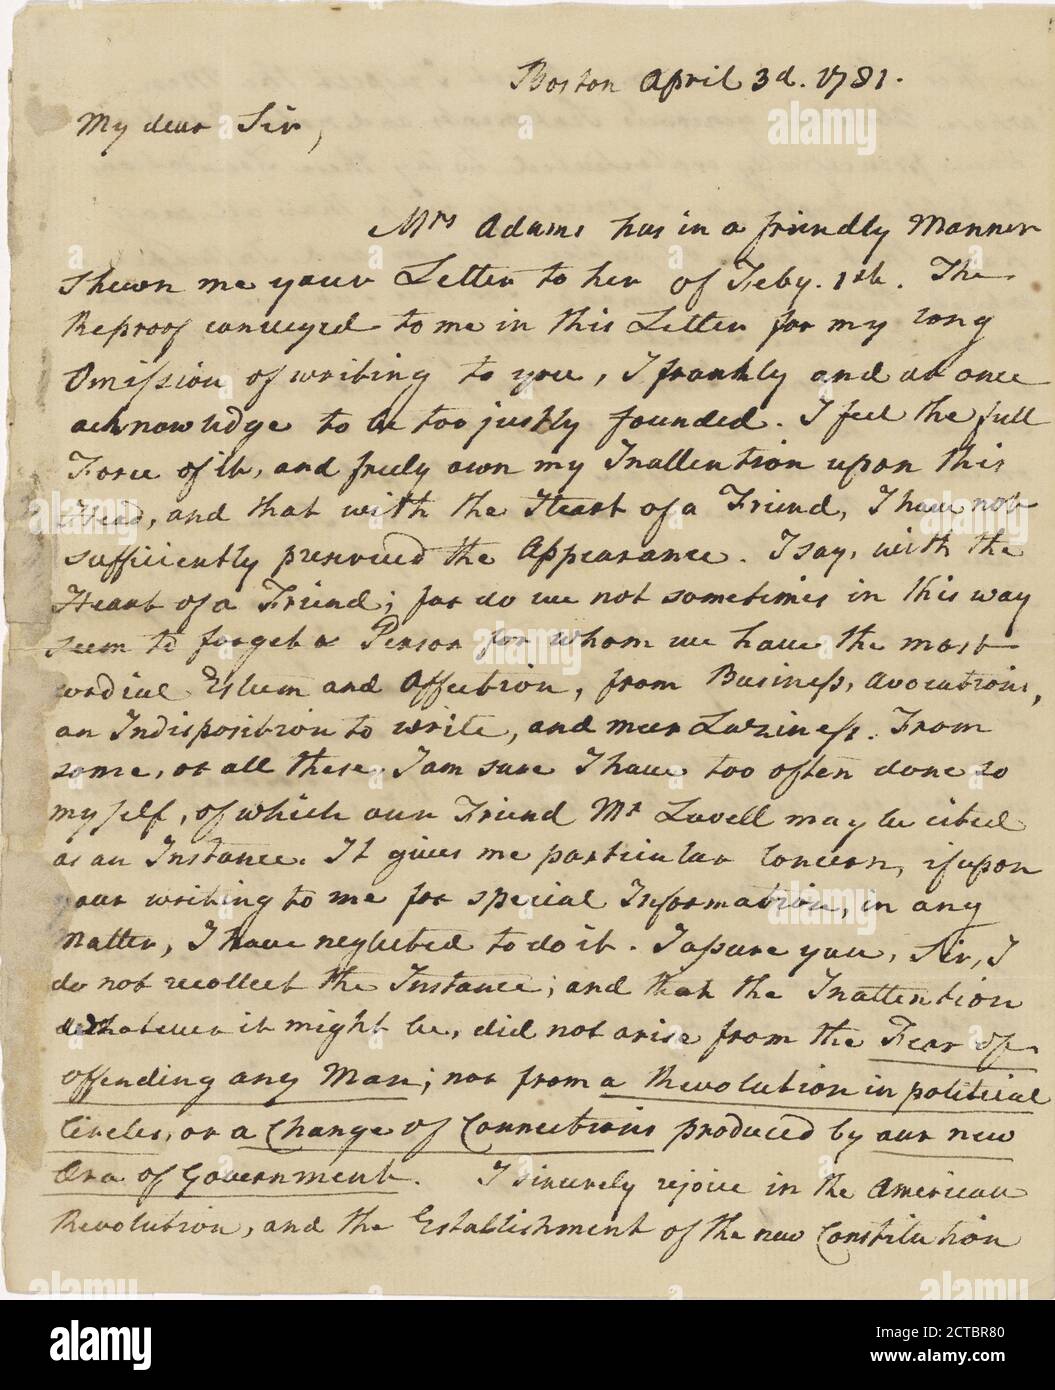 Boston April 3d. 1781.
My dear Sir,
Mrs Adams has in a friendly Manner
shewn me your Letter to her of Feby. 1st. The
Reproof conveyed to me in this Letter for my long
Omission of writing to you, I frankly and at once
acknowledge to be too justly founded. I feel the full
Force of it, and freely own my Inattention upon this
Head, and that with the Heart of a Friend, I have not
sufficiently preserved the Appearance. I say, with the
Heart of a Friend; for do we not sometimes in this way
seem to forget a Person for whom we have the most
cordial Esteem and Affection, from Business, Avocations,
an Indisposition to write, and meer Laziness. From
some, or all these, I am sure I have too often done so
myself, of which our Friend Mr Lovell may be cited
as an Instance. It gives me particular Concern, if upon
your writing to me for special Information, in any
Matter, I have neglected to do it. I assure you, Sir, I
do not recollect the Instance; and that the Inattention
whatever it might be, did not arise from the Fear of
offending any Man; nor from a Revolution in political
Circles, or a Change of Connections produced by our new
Æra of Government. I sincerely rejoice in the American
Revolution, and the Establishment of the new Constitution
alamy
Image ID: 2CTBR80
www.alamy.com